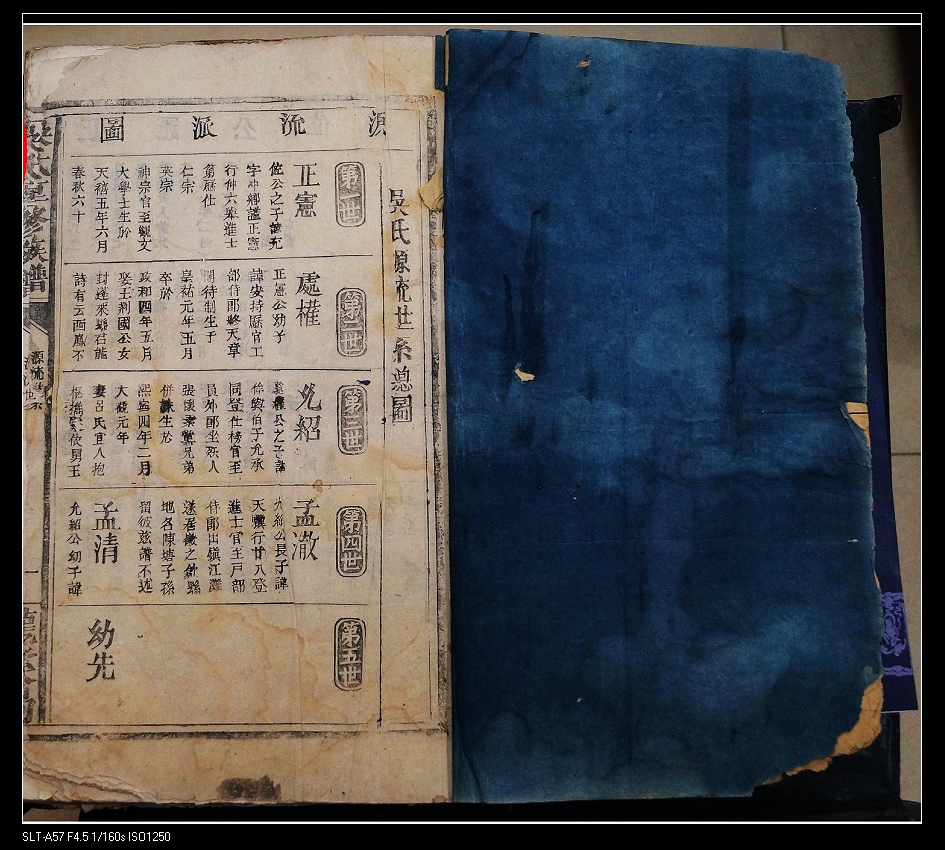 源流派圖
吳氏源流世系總圖
第一世
正憲
佐公之子諱充
字冲卿謚正憲
行仲六舉進士
第歷仕
仁宗
英宗
神宗官至觀文
大學士生於
天禧五年六月
春秋六十
第二世
處權
正憲公幼子
諱安持歷官工
部侍郎終天章
閣待制生于
皇祐元年五月
卒於
政和四年五月
娶王荆國公女
封蓬萊縣君能
詩有云西風不
第三世
允紹
處權公之子諱
侔與伯子允承
同登仕榜官至
員外郎坐妖人
張懷素黨兄弟
併誅生於
熙寧四年二月
大觀元年
妻呂氏宜人抱
男王
第四世
孟澈
允紹公長子諱
天驥行廿八登
進士官至戸部
侍郎由嶺江灘
遂居徽之歙縣
地名陳塘子孫
留彼兹譜不述
孟清
允紹公幼子諱
第五世
幼先
吳氏重修族譜
源流
一
SLT-A57 F4.5 1/160s ISO1250